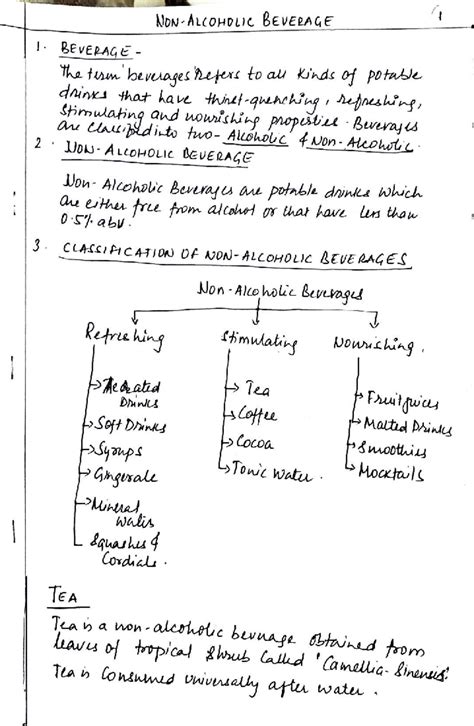 NON-ALCOHOLIC BEVERAGE
1
1. BEVERAGE -
The term 'beverages' refers to all kinds of potable
drinks that have thirst-quenching, refreshing,
stimulating and nourishing properties. Beverages
are classified into two - Alcoholic & Non-Alcoholic.
2. NON-ALCOHOLIC BEVERAGE
Non-Alcoholic Beverages are potable drinks which
are either free from alcohol or that have less than
0.5% abv.
3. CLASSIFICATION OF NON-ALCOHOLIC BEVERAGES
Non-Alcoholic Beverages
Refreshing Stimulating Nourishing.
Aerated
Drinks
Soft Drinks
Syrups
Gingerale
Mineral
Water
Squashes &
Cordials.
Tea
Coffee
Cocoa
Tonic Water.
Fruit juices
Malted Drinks
Smoothies
Mocktails
TEA
Tea is a non-alcoholic beverage obtained from
leaves of tropical shrub called 'Camellia-Sinensis'.
Tea is consumed universally after water.